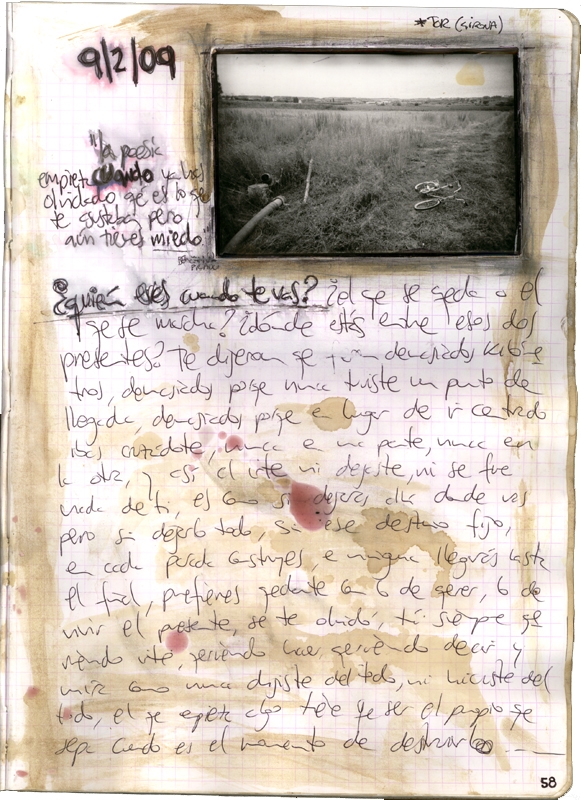 *TOR (GIRONA)
9/2/09
"la poesía
empieza cuando ya has
olvidado qé es lo qe
te gustaba pero
aún tienes miedo"
¿quién eres cuando te vas? ¿el qe se qeda o el
qe se marcha? ¿dónde estás entre esos dos
presentes? Te dijeron qe demasiados kilóme
tros, demasiados porqe nunca tuviste un punto de
llegada, demasiados porqe en lugar de ir centrado
ibas nunca en una parte, nunca en
la otra, y así al irte ni dejaste, ni se fue
nada de ti, es como si dejaras allá donde vas
pero sin dejarlo todo, sin ese destino fijo,
en cada parada construyes, en ninguna llegarás hasta
el final, prefieres qedarte con lo de qerer, lo de
vivir el presente, se te olvidó, tú siempre qe
riendo irte, qeriendo hacer qeriendo decir y
mira como nunca dijiste del todo, ni hiciste del
todo, el qe empieza algo tiene qe ser el propio qe
sepa cuando es el momento de destruirlo
58